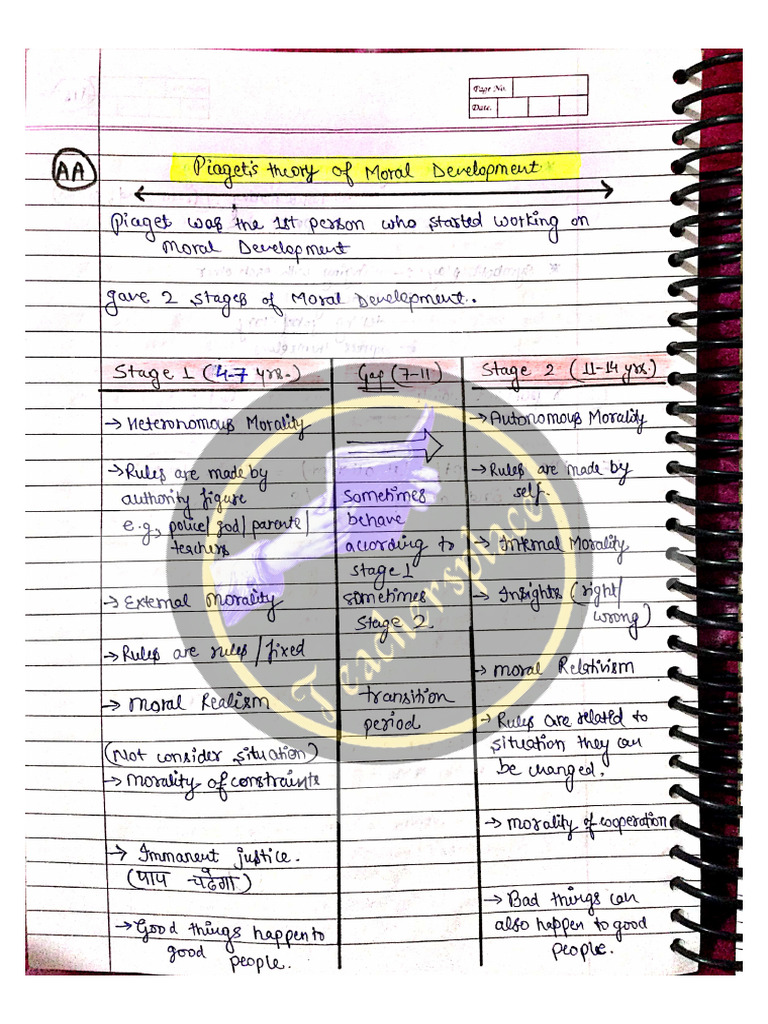 Page No.
Date.
AA
Piaget's theory of Moral Development
Piaget was the 1st person who started working on
Moral Development
gave 2 stages of Moral Development.
Stage 1 (4-7 yrs.)
→ Heteronomous Morality
→ Rules are made by
authority figure
e.g, police/god/parents/
teachers
→ External Morality
→ Rules are rules/fixed
→ Moral Realism
(Not consider situation)
→ Morality of constraints
→ Immanent justice.
(पाप चढेगा)
→ Good things happen to
good people.
Gap (7-11)
sometimes
behave
according to
stage 1
sometimes
stage 2.
transition
period
Stage 2 (11-14 yrs.)
→ Autonomous Morality
→ Rules are made by
self.
→ Internal Morality
→ Insights (right/
wrong)
→ Moral Relativism
→ Rules are related to
situation they can
be changed.
→ Morality of cooperation
→ Bad things can
also happen to good
people.
Teacherspace